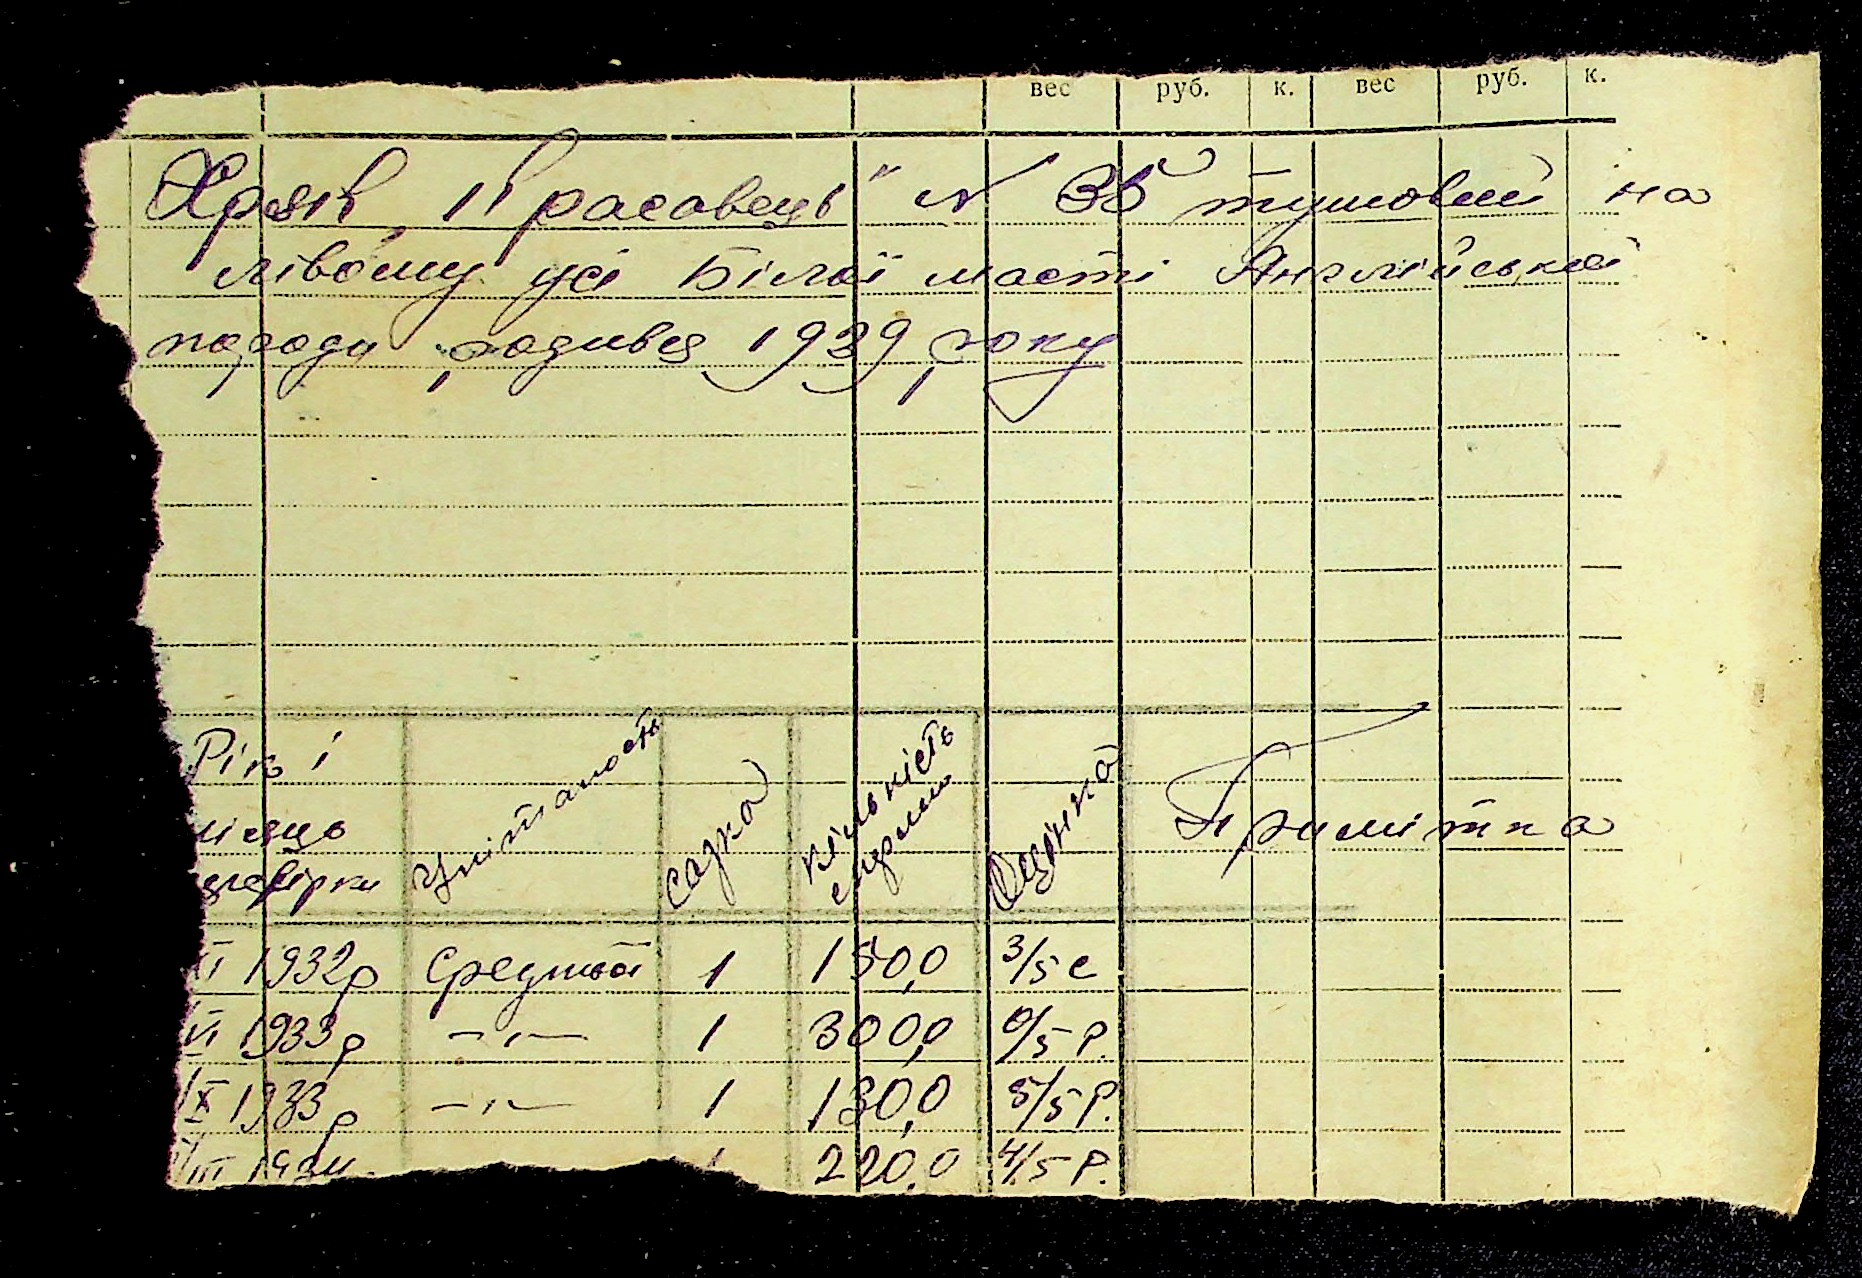 вес руб. к. вес руб. к.
Хряк „Красавець" № 35 тушовий на
лівому усі Білої масті Англійської
породи, родився 1939 року
Рік і
місяць
перевірки
Упітаность
садка
кількість
сперми
Оцінка
Примітка
XI 1932р Средний 1 150,0 3/5 с
VI 1933р —"— 1 300,0 0/5 р.
IX 1933р —"— 1 130,0 5/5 р.
III 1934 1 220,0 4/5 р.